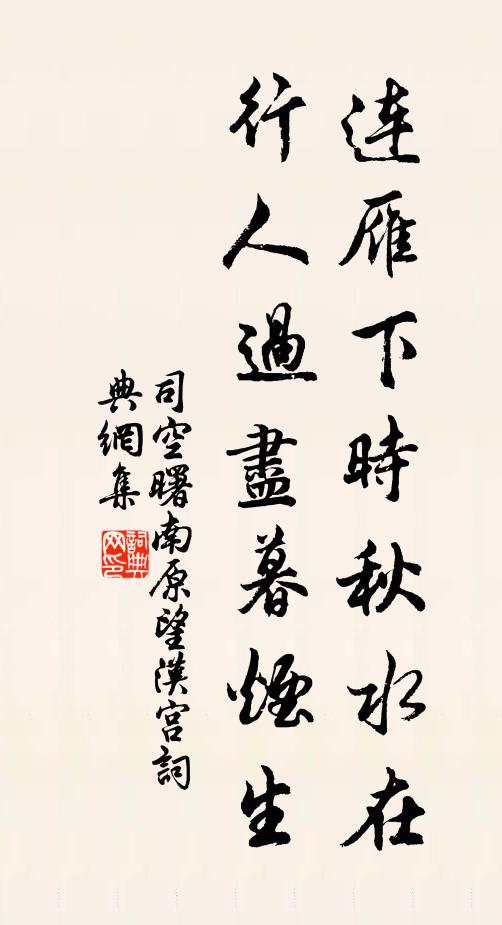 連雁下時秋水在
行人過盡暮煙生
司空曙南原望漢宮詞
典網集
詞典网印